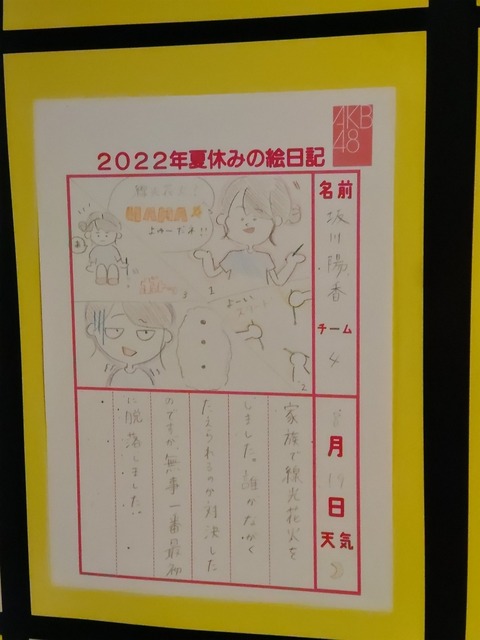 AKB
48
2022年夏休みの絵日記
名前
坂川陽香
チーム
4
8月
19日
天気
線火花火!
よゆーだネ!!
1
よーい
スタート
2
3
家族で線火花火を
しました。誰がながく
たえられるのか対決した
のですが、無事一番最初
に脱落しました!